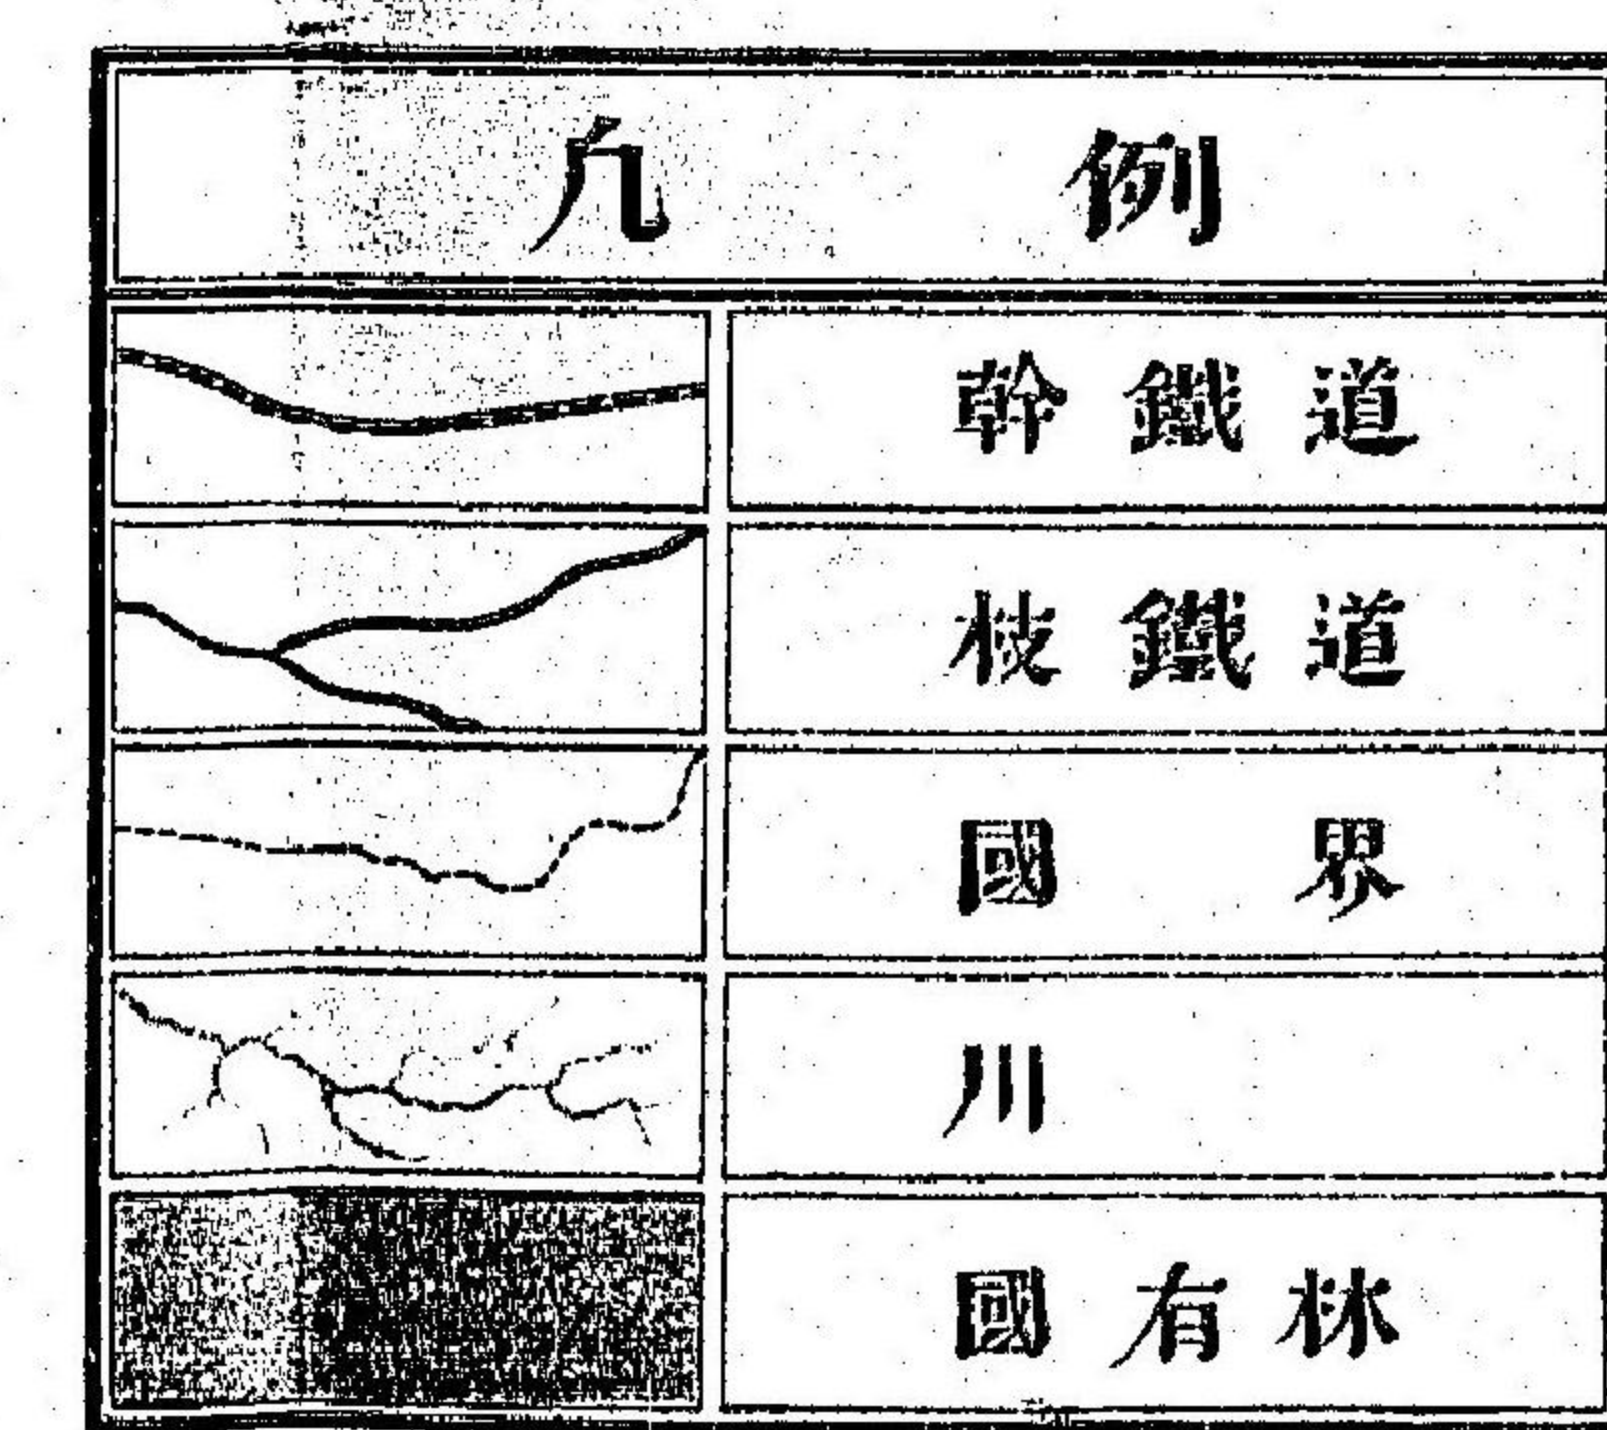 凢例
幹鐵道
枝鐵道
國界
川
國有林